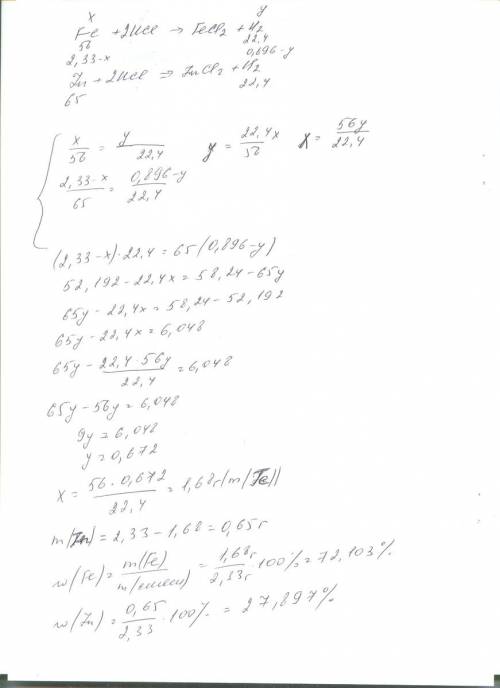 x y
Fe + 2HCl => FeCl2 + H2
56 22,4
2,33-x 0,896-y
Zn + 2HCl => ZnCl2 + H2
65 22,4
x/56 = y/22,4 y = 22,4x/56 x = 56y/22,4
2,33-x/65 = 0,896-y/22,4
(2,33-x)·22,4 = 65(0,896-y)
52,192-22,4x = 58,24-65y
65y-22,4x = 58,24-52,192
65y-22,4x = 6,048
65y - 22,4·56y/22,4 = 6,048
65y-56y = 6,048
9y = 6,048
y = 0,672
x = 56·0,672/22,4 = 1,68г(m(Fe))
m(Zn) = 2,33-1,68 = 0,65г
w(Fe) = m(Fe)/m(смеси) = 1,68г/2,33г·100% = 72,103%
w(Zn) = 0,65/2,33·100% = 27,897%